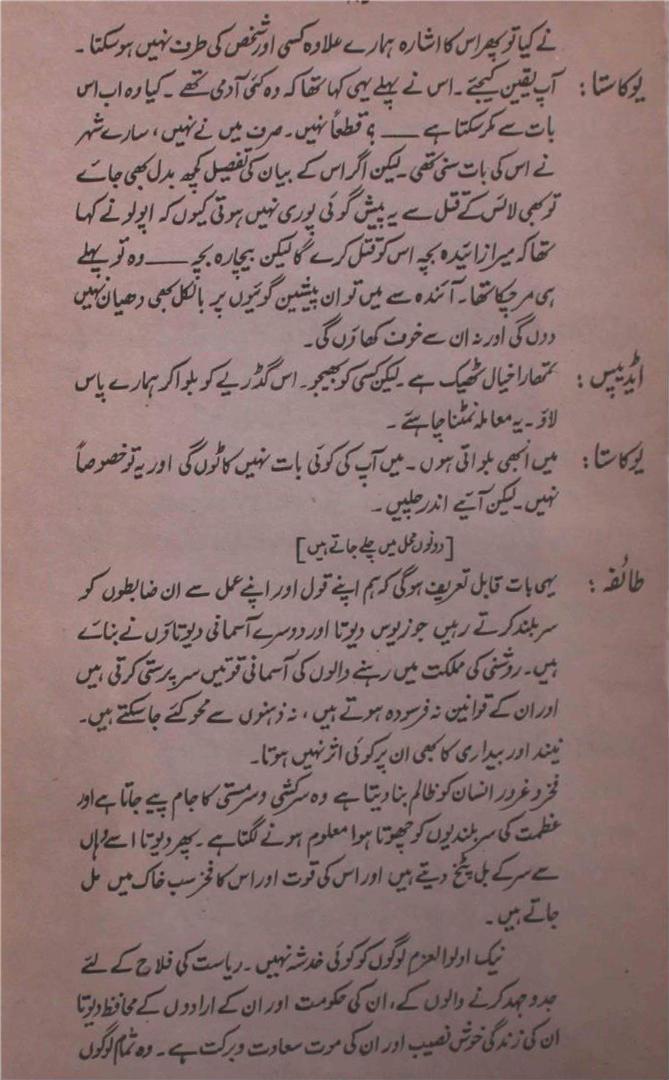 نے کیا تو پھر اس کا اشارہ ہمارے علاوہ کسی اور شخص کی طرف نہیں ہو سکتا ۔
یوکاستا : آپ یقین کیجئے ۔ اس نے پہلے یہی کہا تھا کہ وہ کئی آدمی تھے ۔ کیا وہ اب اس
بات سے مکر سکتا ہے —— ؟ قطعاً نہیں ۔ صرف میں نے نہیں ، سارے شہر
نے اس کی بات سنی تھی ۔ لیکن اگر اس کے بیان کی تفصیل کچھ بدل بھی جائے
تو بھی لائس کے قتل سے یہ پیش گوئی پوری نہیں ہوتی کیوں کہ اپولو نے کہا
تھا کہ میرا زائیدہ بچہ اس کو قتل کرے گا لیکن بیچارہ بچہ —— وہ تو پہلے
ہی مر چکا تھا ۔ آئندہ سے میں تو ان پیشین گوئیوں پر بالکل بھی دھیان نہیں
دوں گی اور نہ ان سے خوف کھاؤں گی ۔
ایڈیپس : تمھارا خیال ٹھیک ہے ۔ لیکن کسی کو بھیجو ۔ اس گڈریے کو بلوا کر ہمارے پاس
لاؤ ۔ یہ معاملہ نمٹنا چاہئے ۔
یوکاستا : میں ابھی بلواتی ہوں ۔ میں آپ کی کوئی بات نہیں کاٹوں گی اور یہ تو خصوصاً
نہیں ۔ لیکن آئیے اندر چلیں ۔
[ دونوں محل میں چلے جاتے ہیں ]
طائفہ : یہی بات قابل تعریف ہوگی کہ ہم اپنے قول اور اپنے عمل سے ان ضابطوں کو
سربلند کرتے رہیں جو زیوس دیوتا اور دوسرے آسمانی دیوتاؤں نے بنائے
ہیں ۔ روشنی کی مملکت میں رہنے والوں کی آسمانی قوتیں سرپرستی کرتی ہیں
اور ان کے قوانین نہ فرسودہ ہوتے ہیں ، نہ ذہنوں سے محو کئے جا سکتے ہیں ۔
نیند اور بیداری کا بھی ان پر کوئی اثر نہیں ہوتا ۔
فخر و غرور انسان کو ظالم بنا دیتا ہے وہ سرکشی و سرمستی کا جام پیے جاتا ہے اور
عظمت کی سربلندیوں کو چھوتا ہوا معلوم ہونے لگتا ہے ۔ پھر دیوتا اسے وہاں
سے سر کے بل پٹخ دیتے ہیں اور اس کی قوت اور اس کا فخر سب خاک میں مل
جاتے ہیں ۔
نیک اولوالعزم لوگوں کو کوئی خدشہ نہیں ۔ ریاست کی فلاح کے لئے
جدوجہد کرنے والوں کے ، ان کی حکومت اور ان کے ارادوں کے محافظ دیوتا
ان کی زندگی خوش نصیب اور ان کی موت سعادت و برکت ہے ۔ وہ تمام لوگوں